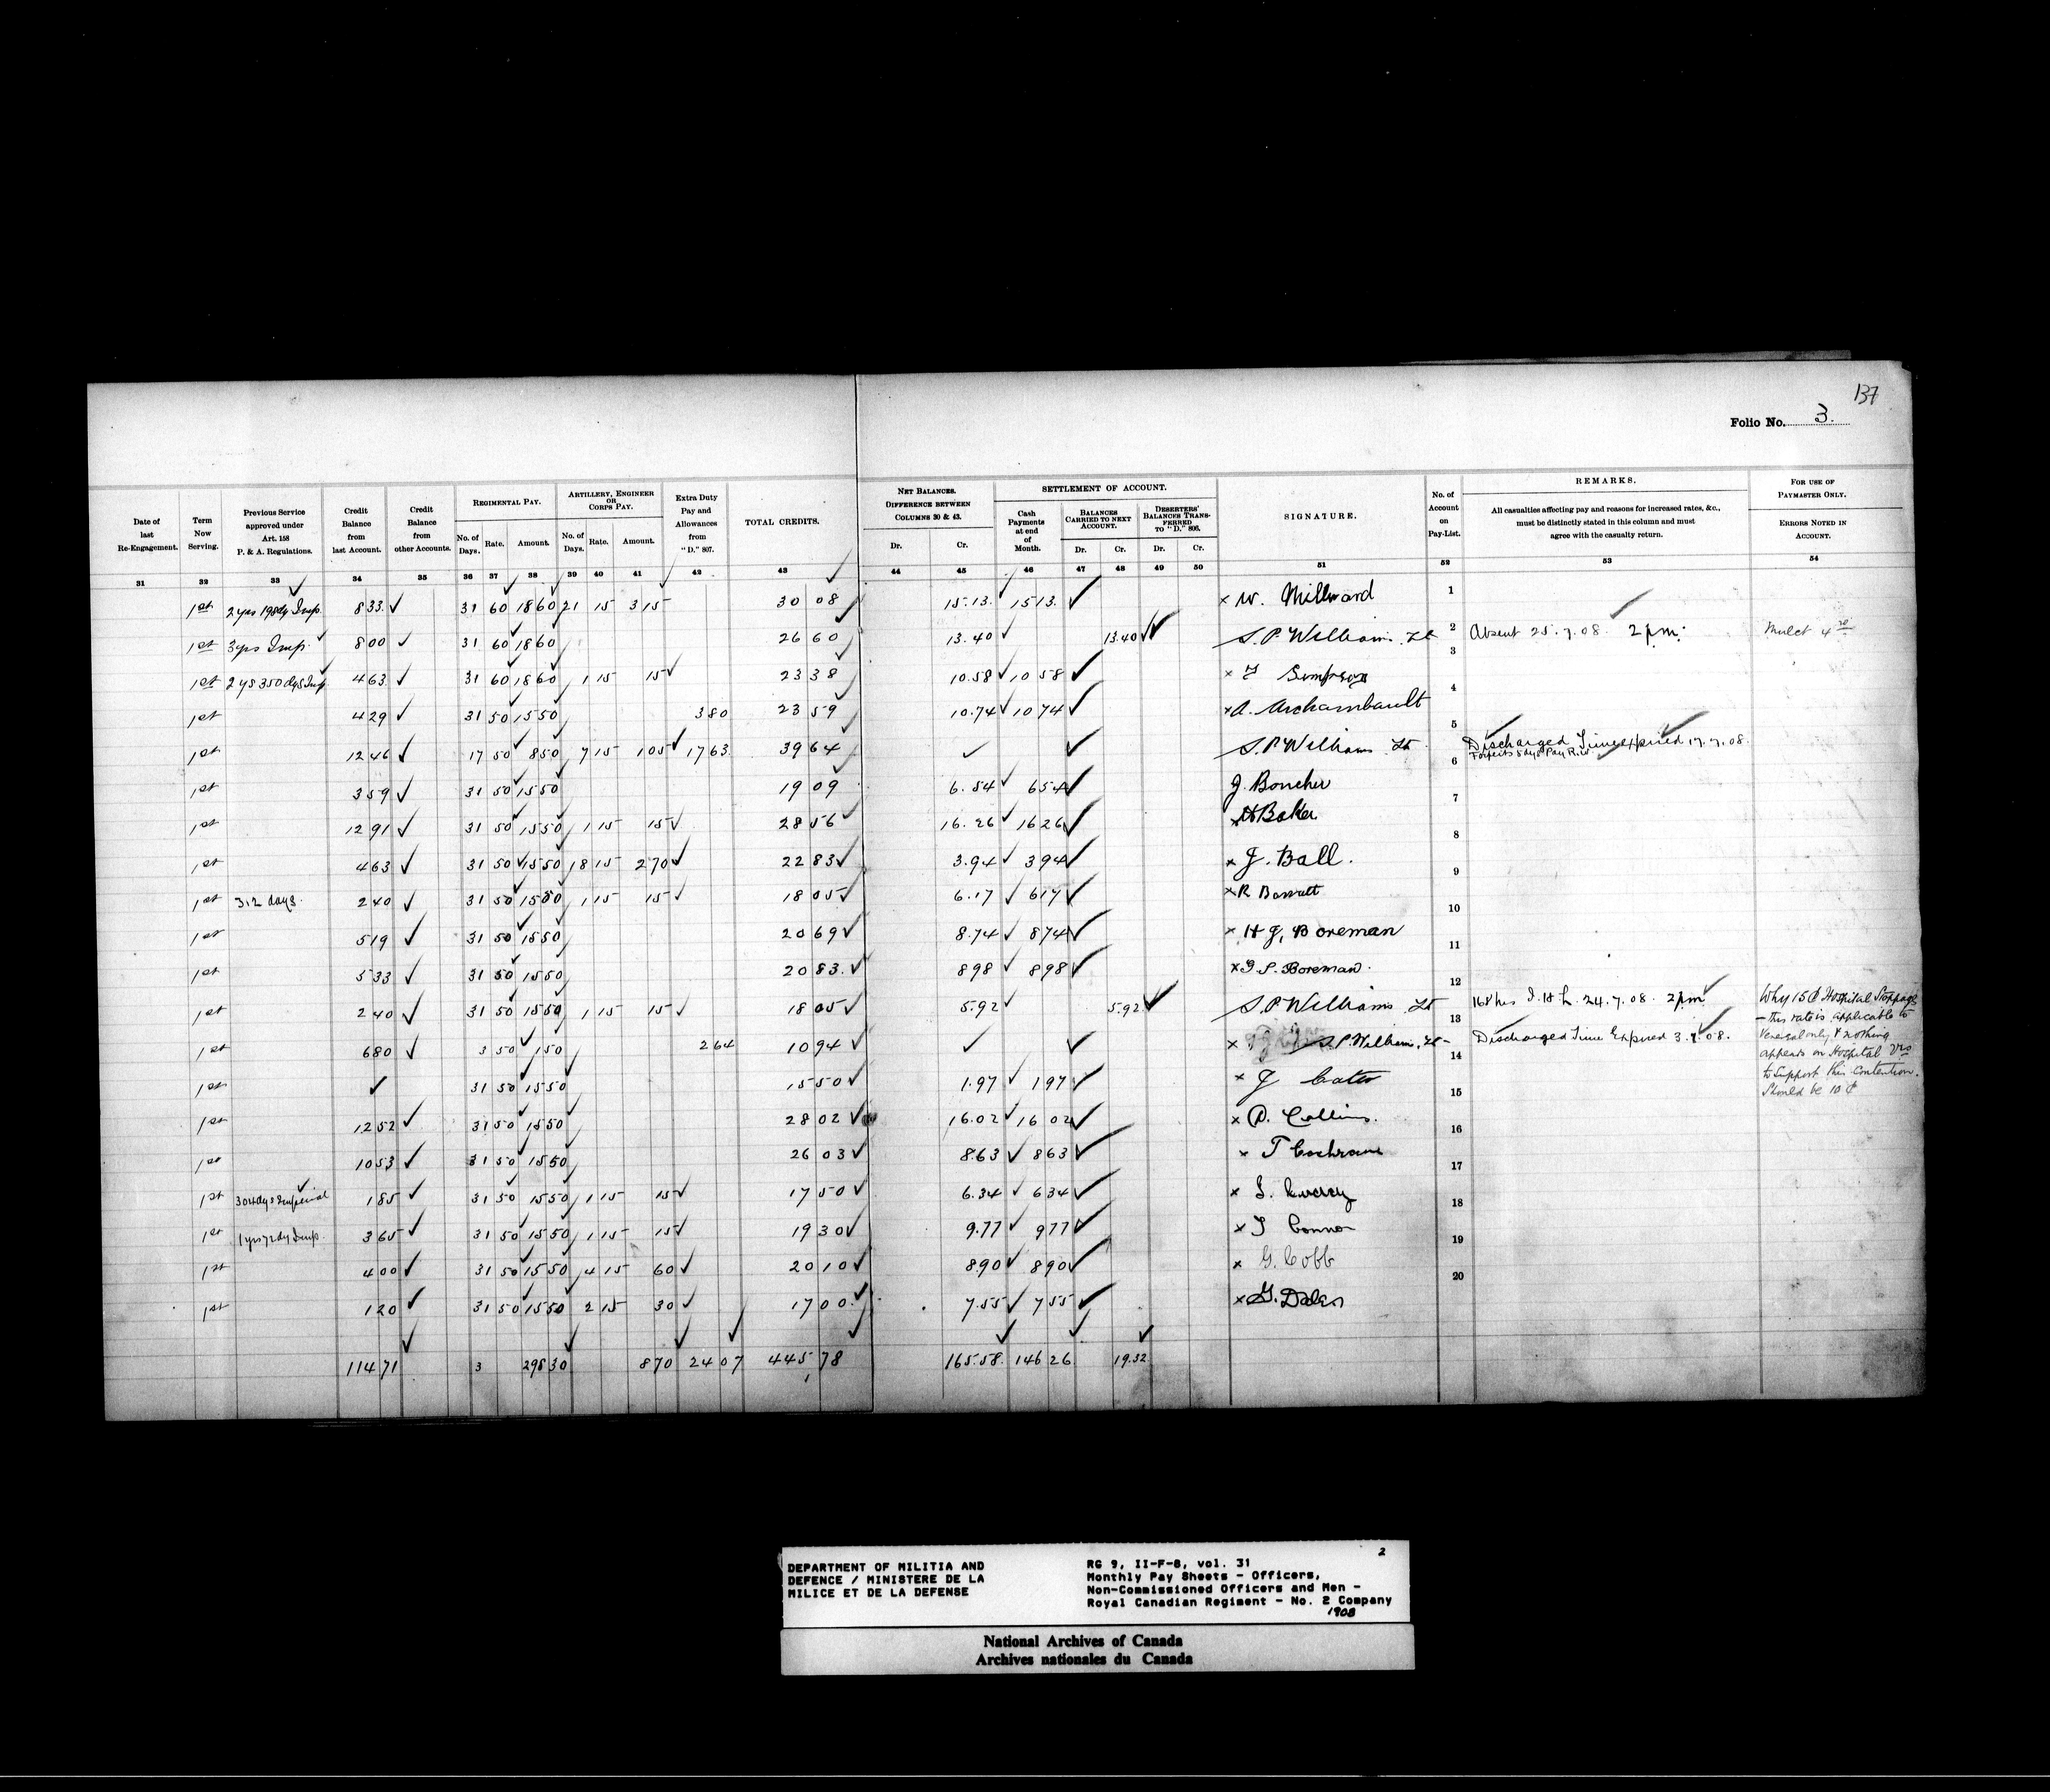 137
Folio No. 3.
Date of last Re-Engagement.
Term Now Serving.
Previous Service approved under Art. 158 P. & A. Regulations.
Credit Balance from last Account.
Credit Balance from other Accounts.
REGIMENTAL PAY.
No. of Days. Rate. Amount.
ARTILLERY, ENGINEER OR CORPS PAY.
No. of Days. Rate. Amount.
Extra Duty Pay and Allowances from "D." 807.
TOTAL CREDITS.
NET BALANCES. DIFFERENCE BETWEEN COLUMNS 30 & 43.
Dr. Cr.
SETTLEMENT OF ACCOUNT.
Cash Payments at end of Month.
BALANCES CARRIED TO NEXT ACCOUNT.
Dr. Cr.
DESERTERS' BALANCES TRANSFERRED TO "D." 806.
Dr. Cr.
SIGNATURE.
No. of Account on Pay-List.
REMARKS.
All casualties affecting pay and reasons for increased rates, &c., must be distinctly stated in this column and must agree with the casualty return.
FOR USE OF PAYMASTER ONLY.
ERRORS NOTED IN ACCOUNT.
31 32 33 34 35 36 37 38 39 40 41 42 43 44 45 46 47 48 49 50 51 52 53 54
1st 2 yrs 198dy Imp. 8 33 31 60 18 60 21 15 3 15 30 08 15.13 15 13 x W. Millward 1
1st 3 yrs Imp. 8 00 31 60 18 60 26 60 13.40 13.40 S. P. Williams Lt 2 Absent 25.7.08. 2 pm. Mulct 4
1st 2 ys 350 dys Imp 4 63 31 60 18 60 1 15 15 23 38 10.58 10 58 x Simpson 3
1st 4 29 31 50 15 50 3 80 23 59 10.74 10 74 x A. Archambault 4
1st 12 46 17 50 8 50 7 15 1 05 17 63 39 64 S. P. Williams Lt 5 Discharged Time expired 17.7.08.
Forfeits 5 dys Pay
1st 3 59 31 50 15 50 19 09 6.54 6 54 J. Boucher 6
1st 12 91 31 50 15 50 1 15 15 28 56 16.26 16 26 H Baker 7
1st 4 63 31 50 15 50 18 15 2 70 22 83 3.94 3 94 x J. Ball. 8
1st 312 days. 2 40 31 50 15 50 1 15 15 18 05 6.17 6 17 x R Barratt 9
1st 5 19 31 50 15 50 20 69 8.74 8 74 x H J, Boreman 10
1st 5 33 31 50 15 50 20 83 8 98 8 98 x S. Boreman. 11
1st 2 40 31 50 15 50 1 15 15 18 05 5.92 5.92 S. P. Williams Lt 12 168 hrs I. H. L. 24.7.08. 2 pm Why 15 ¢ Hospital Stoppage
1st 6 80 3 50 1 50 2 64 10 94 x S. P. William, Lt 13 Discharged Time Expired 3.7.08. — this rate is applicable to
Venereal only & nothing
appears on Hospital Vrs
to support this contention.
Should be 10 ¢
1st 31 50 15 50 15 50 1.97 1 97 x J Cates 14
1st 12 52 31 50 15 50 28 02 16.02 16 02 x D. Collins. 15
1st 10 53 31 50 15 50 26 03 8.63 8 63 x T Cochrane 16
1st 304 dys Imperial 1 85 31 50 15 50 1 15 15 17 50 6.34 6 34 x 17
1st 3 65 31 50 15 50 1 15 15 19 30 9.77 9 77 x Connor 18
1st 4 00 31 50 15 50 4 15 60 20 10 8.90 8 90 x G. Cobb 19
1st 1 20 31 50 15 50 2 15 30 17 00 7.55 7 55 x G. Dolen 20
114 71 3 298 30 8 70 24 07 445 78 165.58 146 26 19.32
DEPARTMENT OF MILITIA AND
DEFENCE / MINISTERE DE LA
MILICE ET DE LA DEFENSE
2
RG 9, II-F-8, vol. 31
Monthly Pay Sheets - Officers,
Non-Commissioned Officers and Men -
Royal Canadian Regiment - No. 2 Company
1908
National Archives of Canada
Archives nationales du Canada